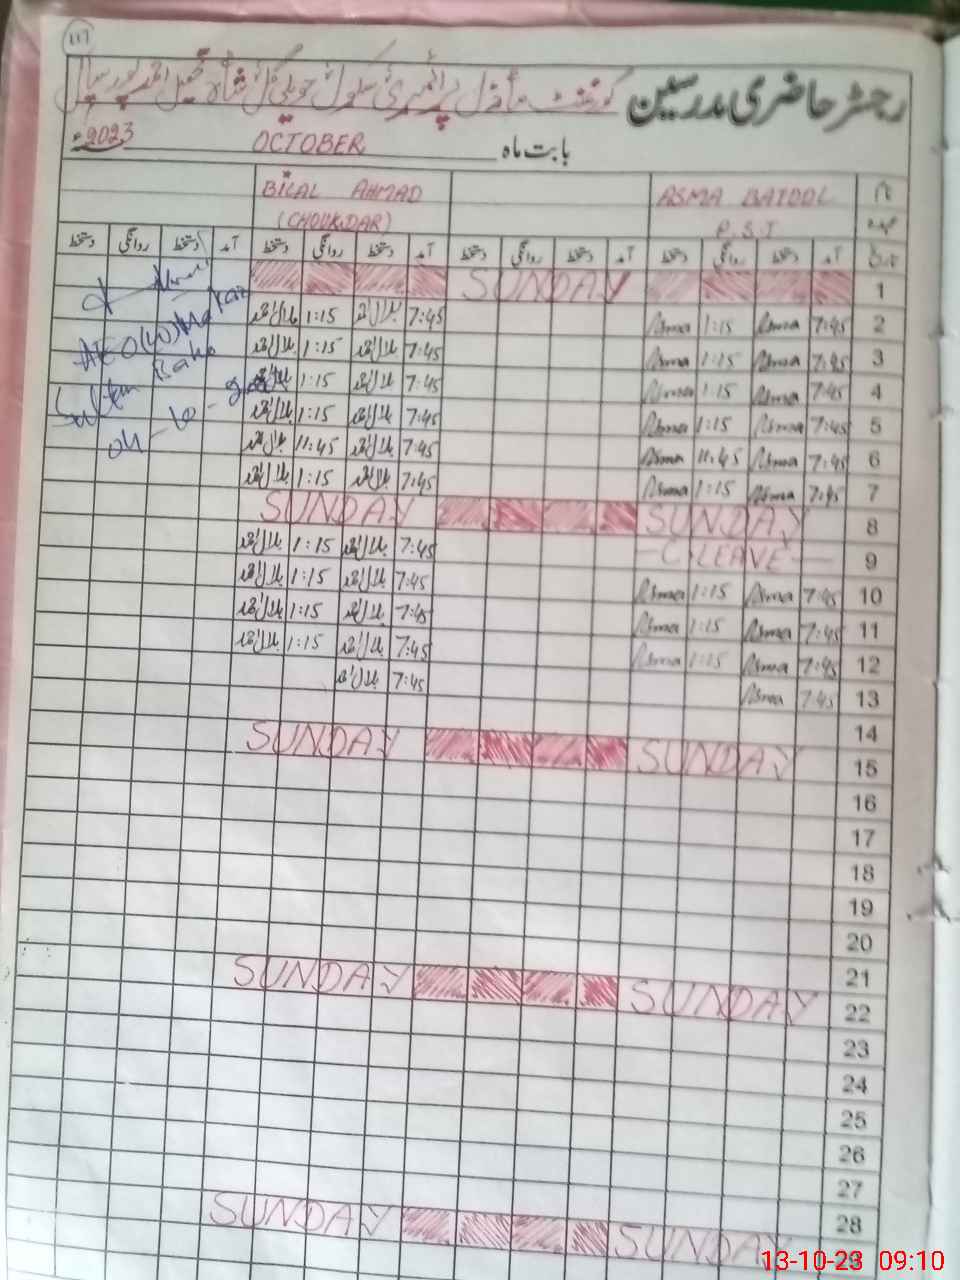 117
رجسٹر حاضری مدرسین گورنمنٹ ماڈل پرائمری سکول حویلی گل شاہ
بابت ماہ OCTOBER 2023ء
نام ASMA BATOOL BILAL AHMAD
عہدہ P.S.T (CHOUKIDAR)
تاریخ آمد دستخط روانگی دستخط آمد دستخط روانگی دستخط آمد دستخط روانگی دستخط آمد دستخط روانگی دستخط
1 SUNDAY
2 7:45 Asma 1:15 Asma 7:45 بلال احمد 1:15 بلال احمد
3 7:45 Asma 1:15 Asma 7:45 بلال احمد 1:15 بلال احمد
4 7:45 Asma 1:15 Asma 7:45 بلال احمد 1:15 بلال احمد
5 7:45 Asma 1:15 Asma 7:45 بلال احمد 1:15 بلال احمد
6 7:45 Asma 11:45 Asma 7:45 بلال احمد 11:45 بلال احمد
7 7:45 Asma 1:15 Asma 7:45 بلال احمد 1:15 بلال احمد
8 SUNDAY SUNDAY
9 C.LEAVE 7:45 بلال احمد 1:15 بلال احمد
10 7:45 Asma 1:15 Asma 7:45 بلال احمد 1:15 بلال احمد
11 7:45 Asma 1:15 Asma 7:45 بلال احمد 1:15 بلال احمد
12 7:45 Asma 1:15 Asma 7:45 بلال احمد 1:15 بلال احمد
13 7:45 Asma 7:45 بلال احمد
14
15 SUNDAY SUNDAY
16
17
18
19
20
21
22 SUNDAY SUNDAY
23
24
25
26
27
28
29 SUNDAY SUNDAY
AEO (W) Markaz
Sultan Bahu
13-10-23 09:10